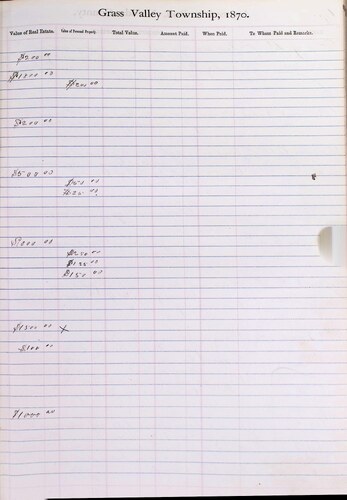 Grass Valley Township, 1870.
Value of Real Estate. Value of Personal Property. Total Value. Amount Paid. When Paid. To Whom Paid and Remarks.
$200 00
$200 00
$200 00
$500 00
$50 00
$250 00
$150 00
$1500 00 X
$100 00
$1000 00